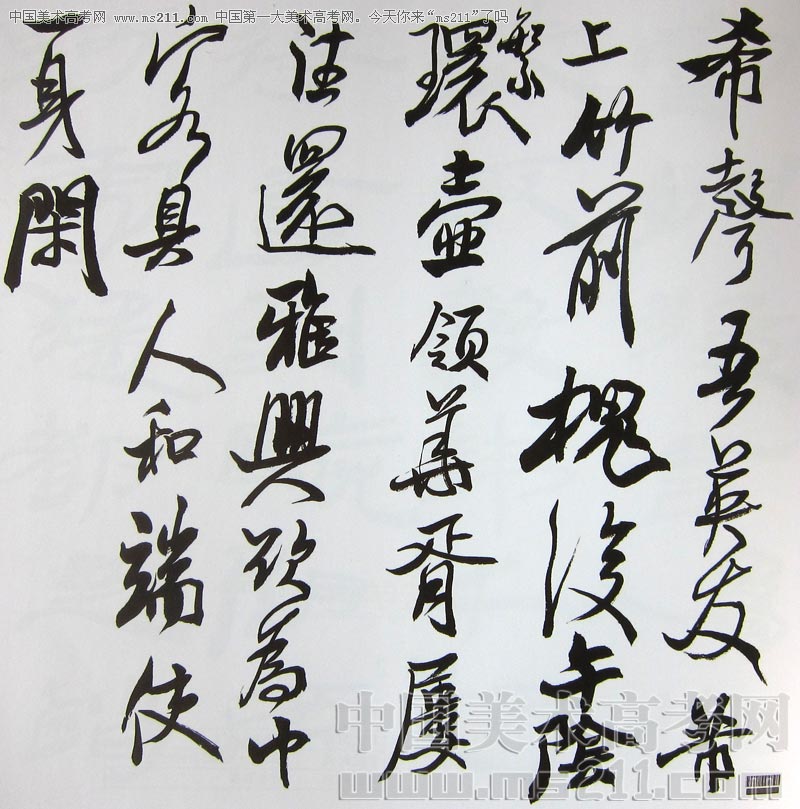 中国美术高考网 www.ms211.com 中国第一大美术高考网。今天你来“ms211”了吗
希聲吾英友芾
上竹前槐後午陰
繁環壺領華胥屢
往還雅興欲為中
客具人和端使
一身閑
中国美术高考网
www.ms211.com